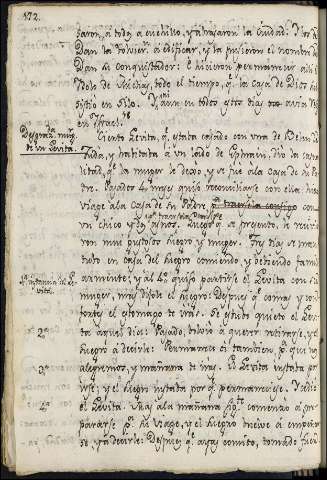 172.
saron, a todos a cuchillo, y abrasaron la Ciudad. Los de
Dan la volvieron a edificar, y la pusieron el nombre de
Dan su conquistador: e hicieron permanecer alli el
Idolo de Michas, todo el tiempo, q.e la casa de Dios
en Silo. Y aun en todos estos dias no avia Rey
en Israel.
Cierto Levita, q.e estaba casado con una de Belen de
Juda, y habitaba a un lado de Ephrain, dio la
q.e la muger le dexo, y se fue a la casa de su Pa-
dre. Pasados 4 meses quiso reconciliarse con ella: hizo
viage a la casa de su Padre
un chico y dos asnos. Luego q.e se presento, le recivie-
ron mui gustosos suegro y muger. Tres dias se man-
tubo en casa del suegro comiendo, y debiendo famili-
armente; y al 4.o quiso partirse el Levita con su
muger, mas dixole el suegro: Despues q.e comas y con-
fortes el estomago te iras. Se estubo quieto el Levi-
ta aquel dia: Pasado, bolvio a querer retirarse, y el
suegro a decirle: Permanece aqui tambien p.a que nos
alegremos, y mañana te iras. El Levita instaba por
irse; y el suegro instaba por q.e permaneciese. Cedio
el Levita. Mas a la mañana comenzo a pre-
pararse p.a su viage, y el suegro buelve a empeñar-
se y a decirle: Despues q.e ayas comido, tomado fuer-
de un Levita.
2.o
3.o